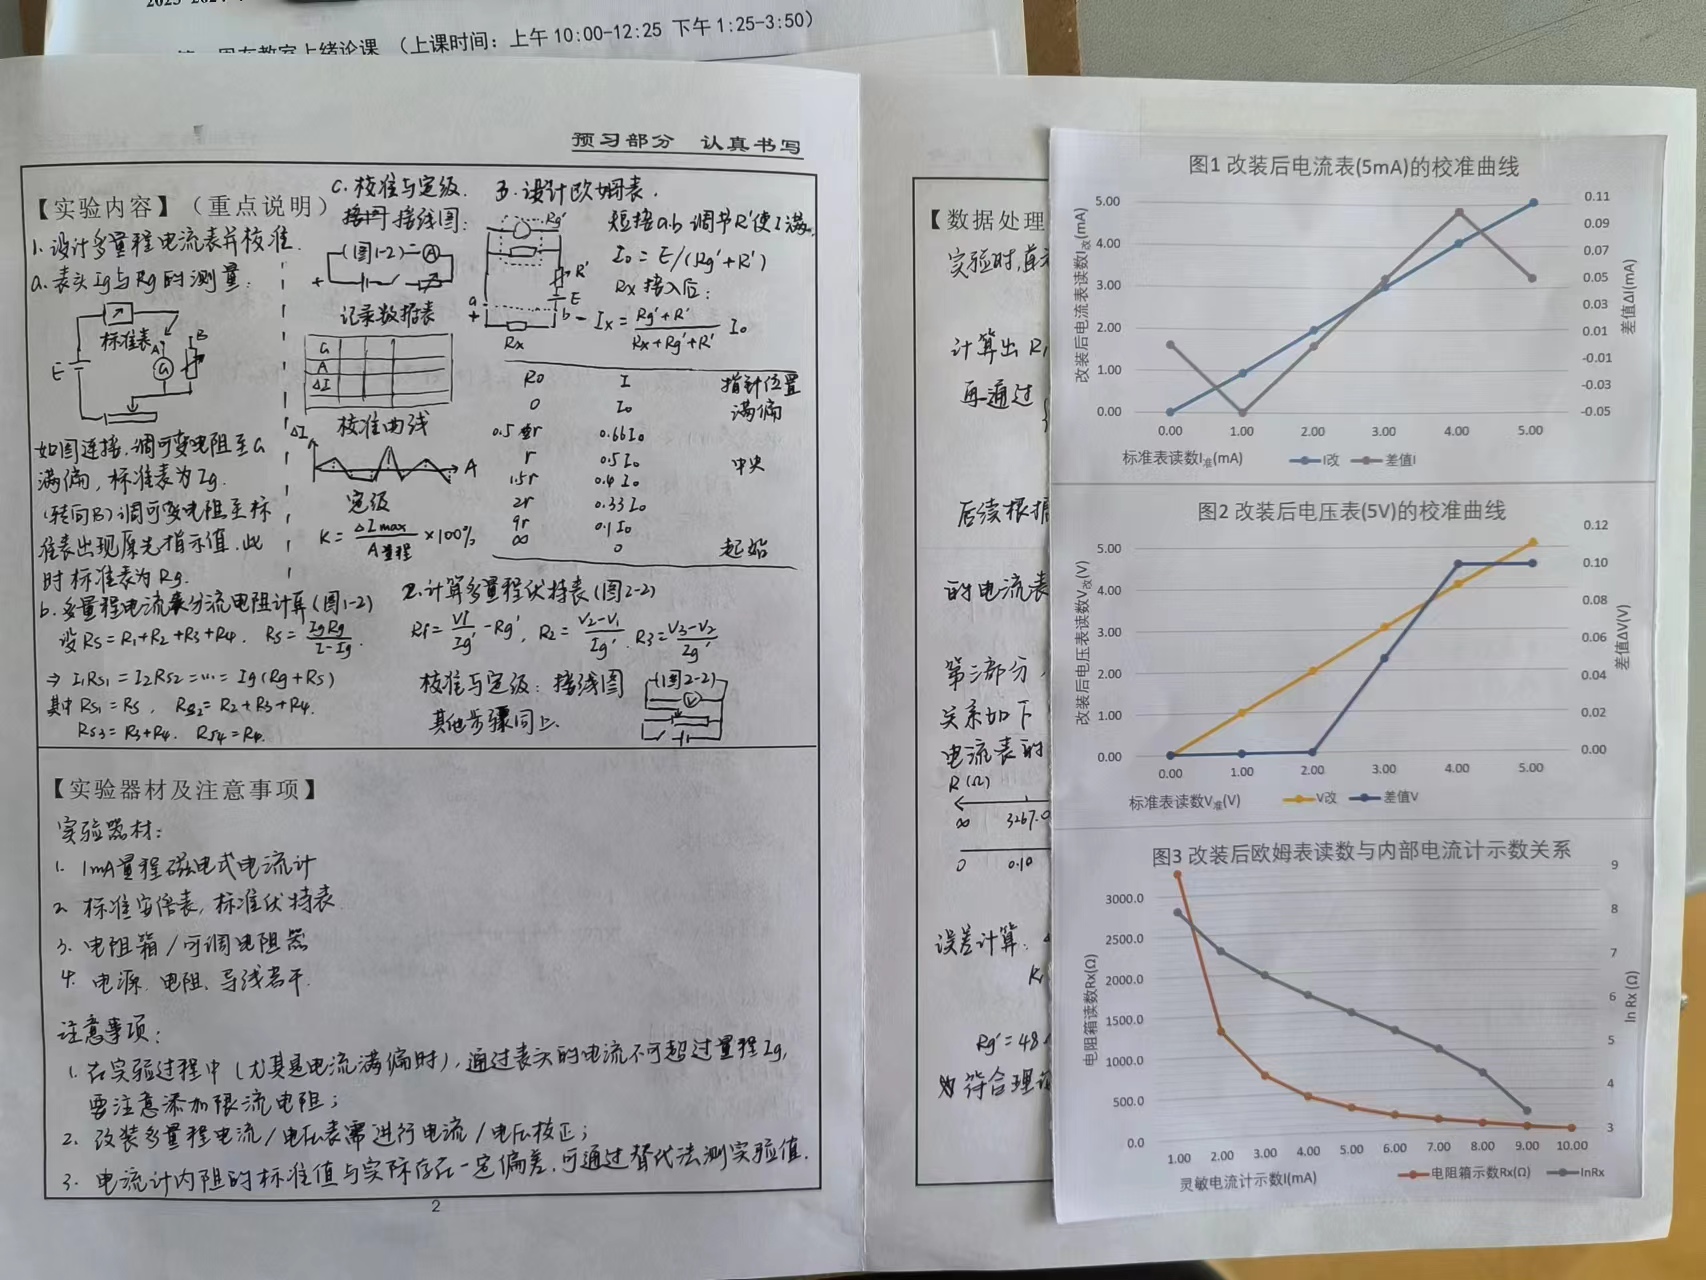 （上课时间：上午10:00-12:25 下午1:25-3:50）
预习部分 认真书写
【实验内容】（重点说明）
1. 设计多量程电流表并校准.
a. 表头Ig与Rg的测量：
标准表
A
B
G
E
如图连接，调可变电阻至G
满偏，标准表为Ig.
(转向B)调可变电阻至标
准表出现原先指示值，此
时标准表为Rg.
b. 多量程电流表分流电阻计算(图1-2)
设Rs=R1+R2+R3+R4. Rs=IgRg/(I-Ig)
⇒ I1Rs1=I2Rs2=…=Ig(Rg+Rs)
其中Rs1=Rs, Rs2=R2+R3+R4.
Rs3=R3+R4. Rs4=R4.
C. 校准与定级.
接线图：
(图1-2)
A
+
-
记录数据表
G
A
ΔI
校准曲线
ΔI
A
定级
K=ΔImax/A量程×100%
3. 设计欧姆表.
Rg'
R'
E
a
+
b
-
Rx
短接a.b调节R'使I满.
I0=E/(Rg'+R')
Rx接入后：
Ix=(Rg'+R')/(Rx+Rg'+R') I0
R0 I 指针位置
0 I0 满偏
0.5r 0.66I0
r 0.5I0 中央
1.5r 0.4I0
2r 0.33I0
9r 0.1I0
∞ 0 起始
2. 计算多量程伏特表(图2-2)
R1=V1/Ig'-Rg', R2=(V2-V1)/Ig', R3=(V3-V2)/Ig'
校准与定级：接线图
其他步骤同上.
(图2-2)
V
【实验器材及注意事项】
实验器材：
1. 1mA量程磁电式电流计
2. 标准安倍表，标准伏特表
3. 电阻箱/可调电阻器
4. 电源、电阻、导线若干.
注意事项：
1. 在实验过程中(尤其是电流满偏时)，通过表头的电流不可超过量程Ig,
要注意添加限流电阻；
2. 改装多量程电流/电压表需进行电流/电压校正；
3. 电流计内阻的标准值与实际存在一定偏差，可通过替代法测实验值.
2
【数据处理
实验时，
计算出R
再通过
后续根据
的电流表
第三部分，
关系如下
电流表的
R(Ω)
∞ 3267.0
0 0.10
误差计算：
K
Rg'=48
为符合理
图1 改装后电流表(5mA)的校准曲线
改装后电流表读数I改(mA)
5.00
4.00
3.00
2.00
1.00
0.00
0.11
0.09
0.07
0.05
0.03
0.01
-0.01
-0.03
-0.05
差值ΔI(mA)
0.00 1.00 2.00 3.00 4.00 5.00
标准表读数I准(mA) I改 差值I
图2 改装后电压表(5V)的校准曲线
改装后电压表读数V改(V)
5.00
4.00
3.00
2.00
1.00
0.00
0.12
0.10
0.08
0.06
0.04
0.02
0.00
差值ΔV(V)
0.00 1.00 2.00 3.00 4.00 5.00
标准表读数V准(V) V改 差值V
图3 改装后欧姆表读数与内部电流计示数关系
电阻箱读数Rx(Ω)
3000.0
2500.0
2000.0
1500.0
1000.0
500.0
0.0
9
8
7
6
5
4
3
ln Rx (Ω)
1.00 2.00 3.00 4.00 5.00 6.00 7.00 8.00 9.00 10.00
灵敏电流计示数I(mA) 电阻箱示数Rx(Ω) lnRx